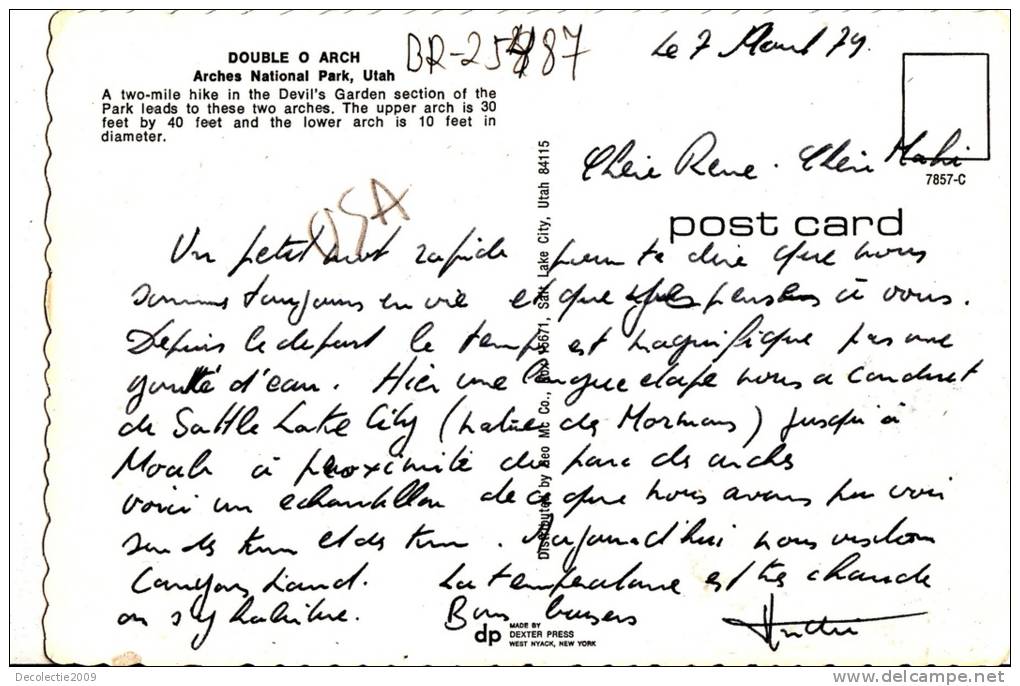 DOUBLE O ARCH
Arches National Park, Utah
A two-mile hike in the Devil's Garden section of the
Park leads to these two arches. The upper arch is 30
feet by 40 feet and the lower arch is 10 feet in
diameter.
BR-25487
USA
Le 7 Aout 79.
7857-C
Chère Rene. Chère
post card
Un petit mot rapide pour te dire que nous
sommes toujours en vie et que pensons à vous.
Depuis le depart le temps est magnifique pas une
goutte d'eau. Hier une longue etape nous a conduit
de Sattle Lake City (patrie des Mormons) jusqu'à
Moab à proximité du parc des arches
voici un echantillon de ce que nous avons pu voir
sur des km et des km. Aujourd'hui nous visitons
Canyon Land. La temperature est très chaude
on s'y habitue. Bons baisers
Distributed by Geo Mc Co., Box 15671, Salt Lake City, Utah 84115
dp
MADE BY
DEXTER PRESS
WEST NYACK, NEW YORK
Decolectie2009
http://www.delcampe.net